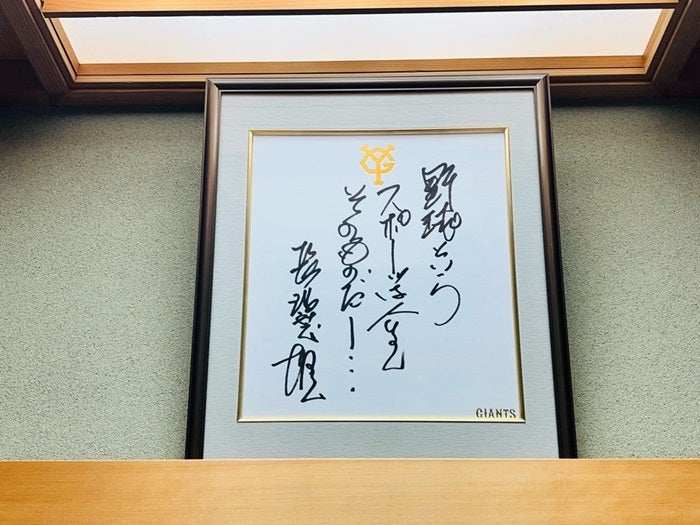 YG
野球という
スポーツは人生
そのものだー…
長嶋茂雄
GIANTS